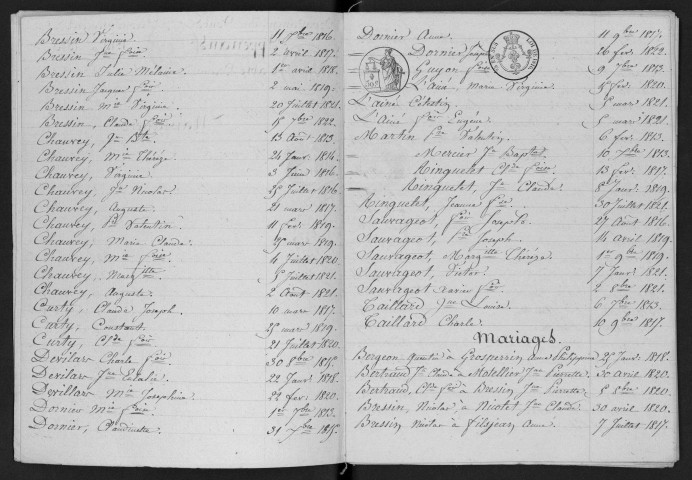 Bressin Virginie. 11 7bre 1816.
Bressin Jne Fcoise 2 avril 1817.
Bressin Julie Mélanie. 1er avril 1818.
Bressin Jacques Fcois 2 mai 1819.
Bressin Mie Virginie 20 Juillet 1821.
Bressin, Claude Fcois 5 7bre 1822.
Chauvey, Jn Bte 13 Août 1813.
Chauvey, Mie Thérèze 24 Janv. 1814.
Chauvey, Virginie 3 Juin 1816.
Chauvey, Jn Nicolas 25 Juillet 1816.
Chauvey, Auguste. 21 mars 1817.
Chauvey, Valentin 11 Fév. 1819.
Chauvey, Marie Claude. mars 1819.
Chauvey, Mie Fcoise 4 Juillet 1820.
Chauvey, Juillet 1821.
Chauvey, Auguste 2 Août 1821.
Curty, Claude Joseph. 10 mars 1817.
Curty, Constant. 25 mars 1819.
Curty, Fcois 21 Juillet 1820.
Devilars Charle Fcois 30 8bre 1815.
Devilars Jne Eulalie 22 Janv. 1818.
Devillars Mie Josephine 29 fév. 1820.
Dornier Mie Fcoise 1er 7bre 1813.
Dornier, Claudinette. 31 Xbre 1815.
Dornier Anne. 11 9bre 1817.
Dornier Joseph 26 fév. 1822.
Guyon Fcoise 9 7bre 1813.
Marie Virginie 5 fév. 1820.
L'ainé Célestin 5 mars 1821.
L'Ainé Fcois Eugène 5 mars 1821.
Martin Valentin. 6 fév. 1813.
Mercier Jn Baptiste. 10 7bre 1813.
Rinquelet Fcois 13 fév. 1817.
Rinquelet, Jn Claude. 8 Janv. 1819.
Rinquelet, Jeanne Fcoise 30 Juillet 1821.
Sauvageot, Fcois Joseph. 27 Août 1816.
Sauvageot, Joseph. 14 avril 1819.
Sauvageot, Margtte Thérèze 1er 9bre 1819.
Sauvageot, Victor. 7 Janv. 1821.
Sauvageot Xavier Fcois 2 8bre 1821.
Taillard Jne Louise. 6 7bre 1813.
Taillard Charle. 10 9bre 1817.
Mariages.
Bergeon Quentin à Grosperrin Anne Philippine 25 Janv. 1818.
Bertrand Jn Claude à Motellier Jne Pierrette 30 avril 1820.
Bertrand, Fcois à Bressin Jne Pierrette 5 8bre 1820.
Bressin, Nicolas à Nicolet Jne Claude 30 avril 1820.
Bressin Nicolas à Filsjean Anne. 7 Juillet 1817.